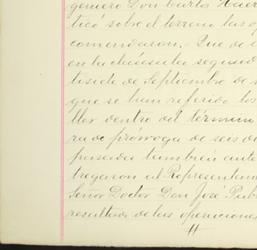 geniero Don Carlos
ticó sobre el terreno las op
comendaron.- Que de a
en la cláusula segund
tisiete de Septiembre de
que se han referido los
llor dentro del término
ra de prórroga de seis d
pasada tambien ante
tregaron al Representan
Señor Doctor Don José Pab
resultado de las operaciones